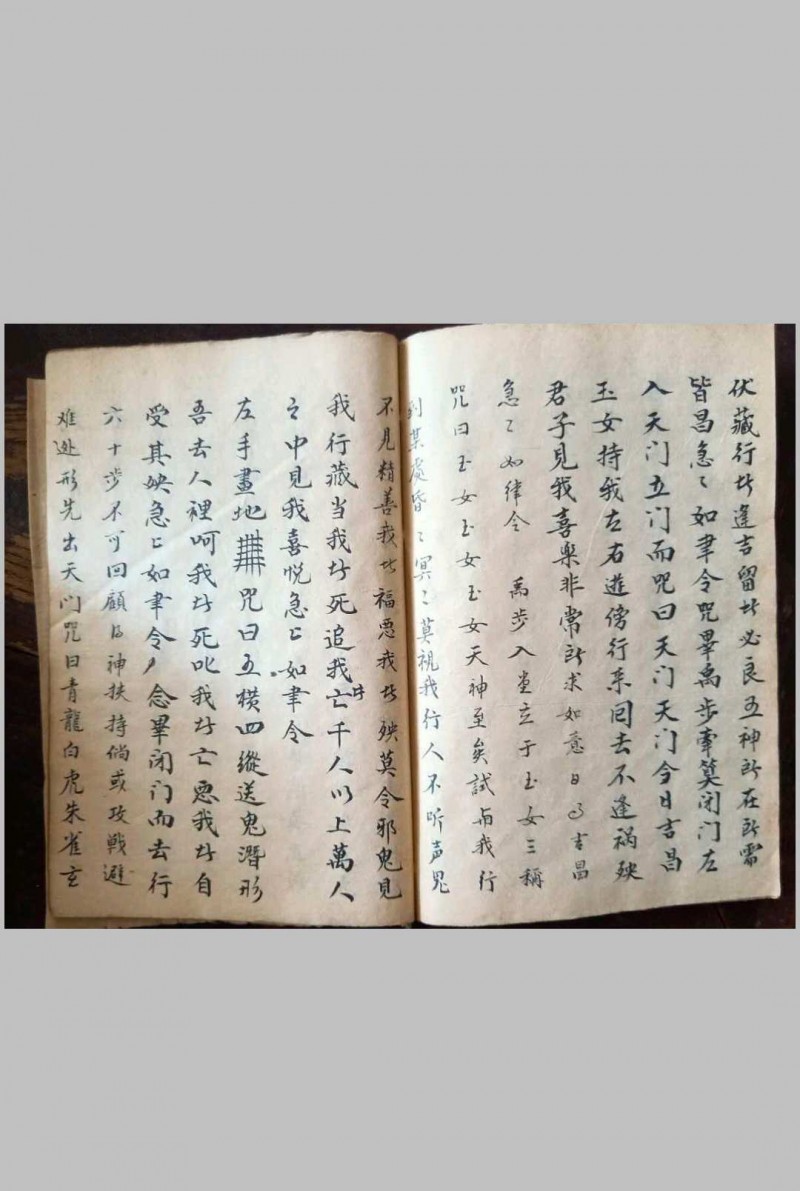 伏藏行此逢吉留此必良五神所在所需
皆昌急〻如聿令咒畢禹步牽算闭门左
入天门立门而咒曰天门天门今日吉昌
玉女持我左右遊傍行来回去不逢祸殃
君子見我喜楽非常所求如意日日吉昌
急〻如律令 禹步入堂立于玉女三稱
咒曰玉女玉女玉女天神至矣試与我行
到某處昏〻冥〻莫視我行人不听声鬼
不見精善我此福恶我此殃莫令邪鬼見
我行藏当我此死追我此亡千人以上萬人
之中見我喜悦急〻如聿令
左手畫地 咒曰五横四縱送鬼潛形
吾去人裡呵我此死叱我此亡恶我此自
受其殃急〻如聿令念畢闭门而去行
六十步不可回顧 神扶持倘或攻戰避
难迯形先出天门咒曰青龍白虎朱雀玄